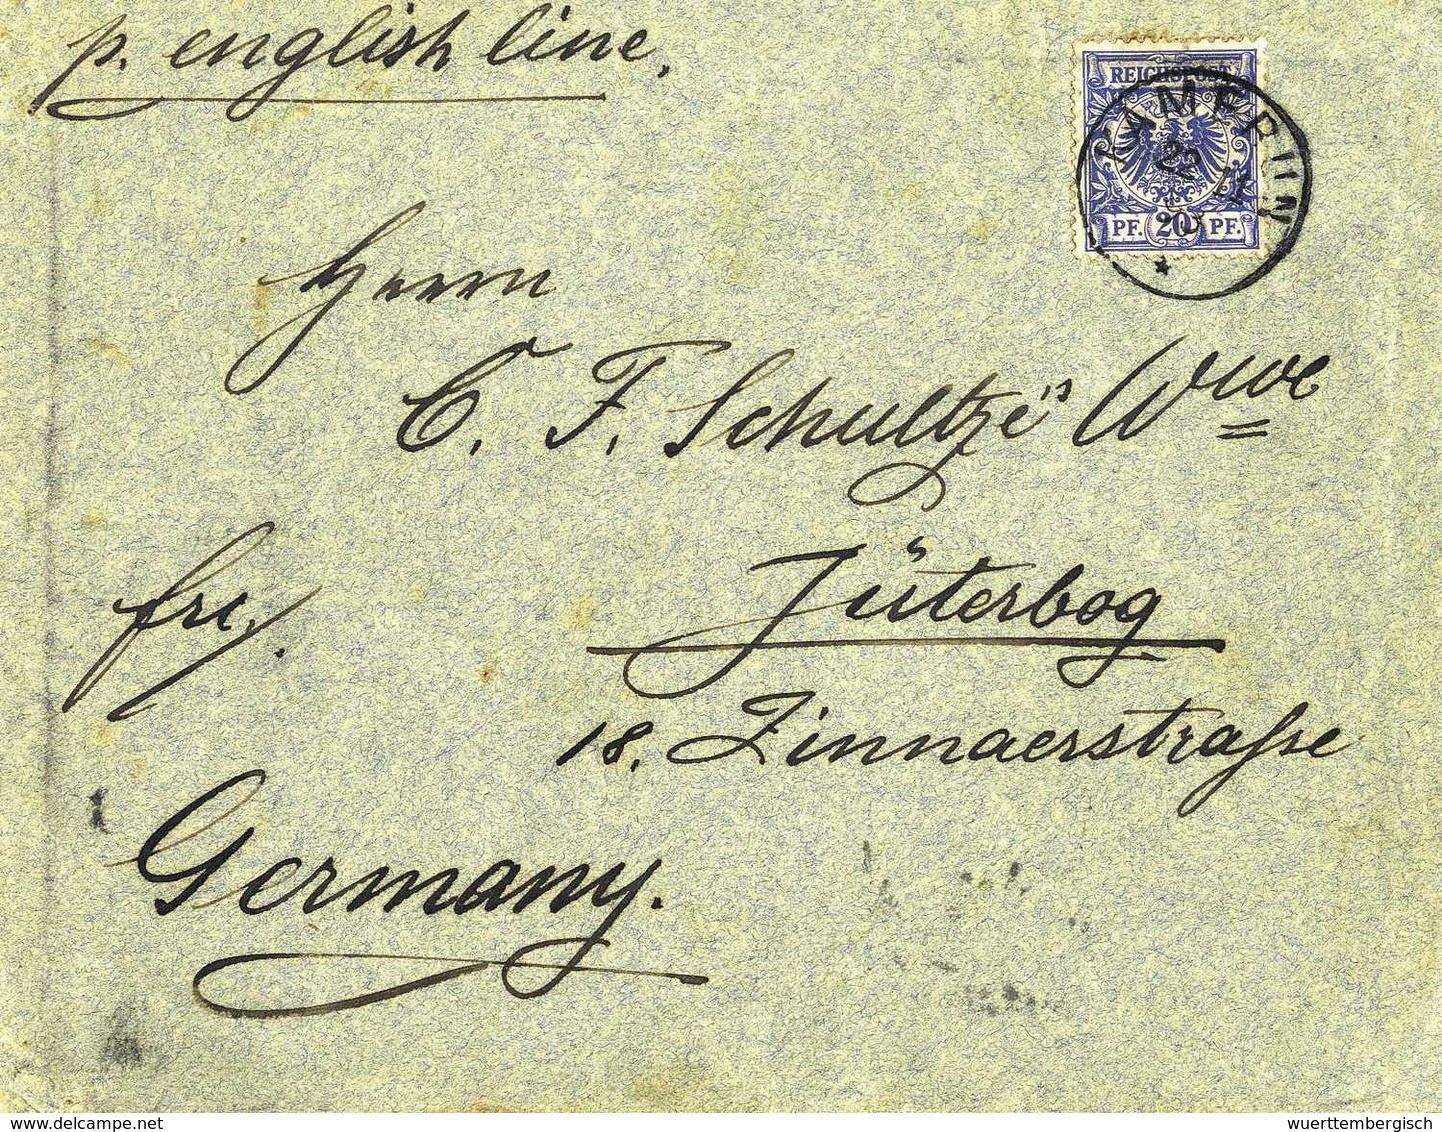 p. english line.
REICHSPOST
KAMERUN
22 11
PF. 20 PF.
Herrn
C. F. Schultze's Wwe
Jüterbog
fr.
18. Zinnaerstraße
Germany.
delcampe.net
wuerttembergisch